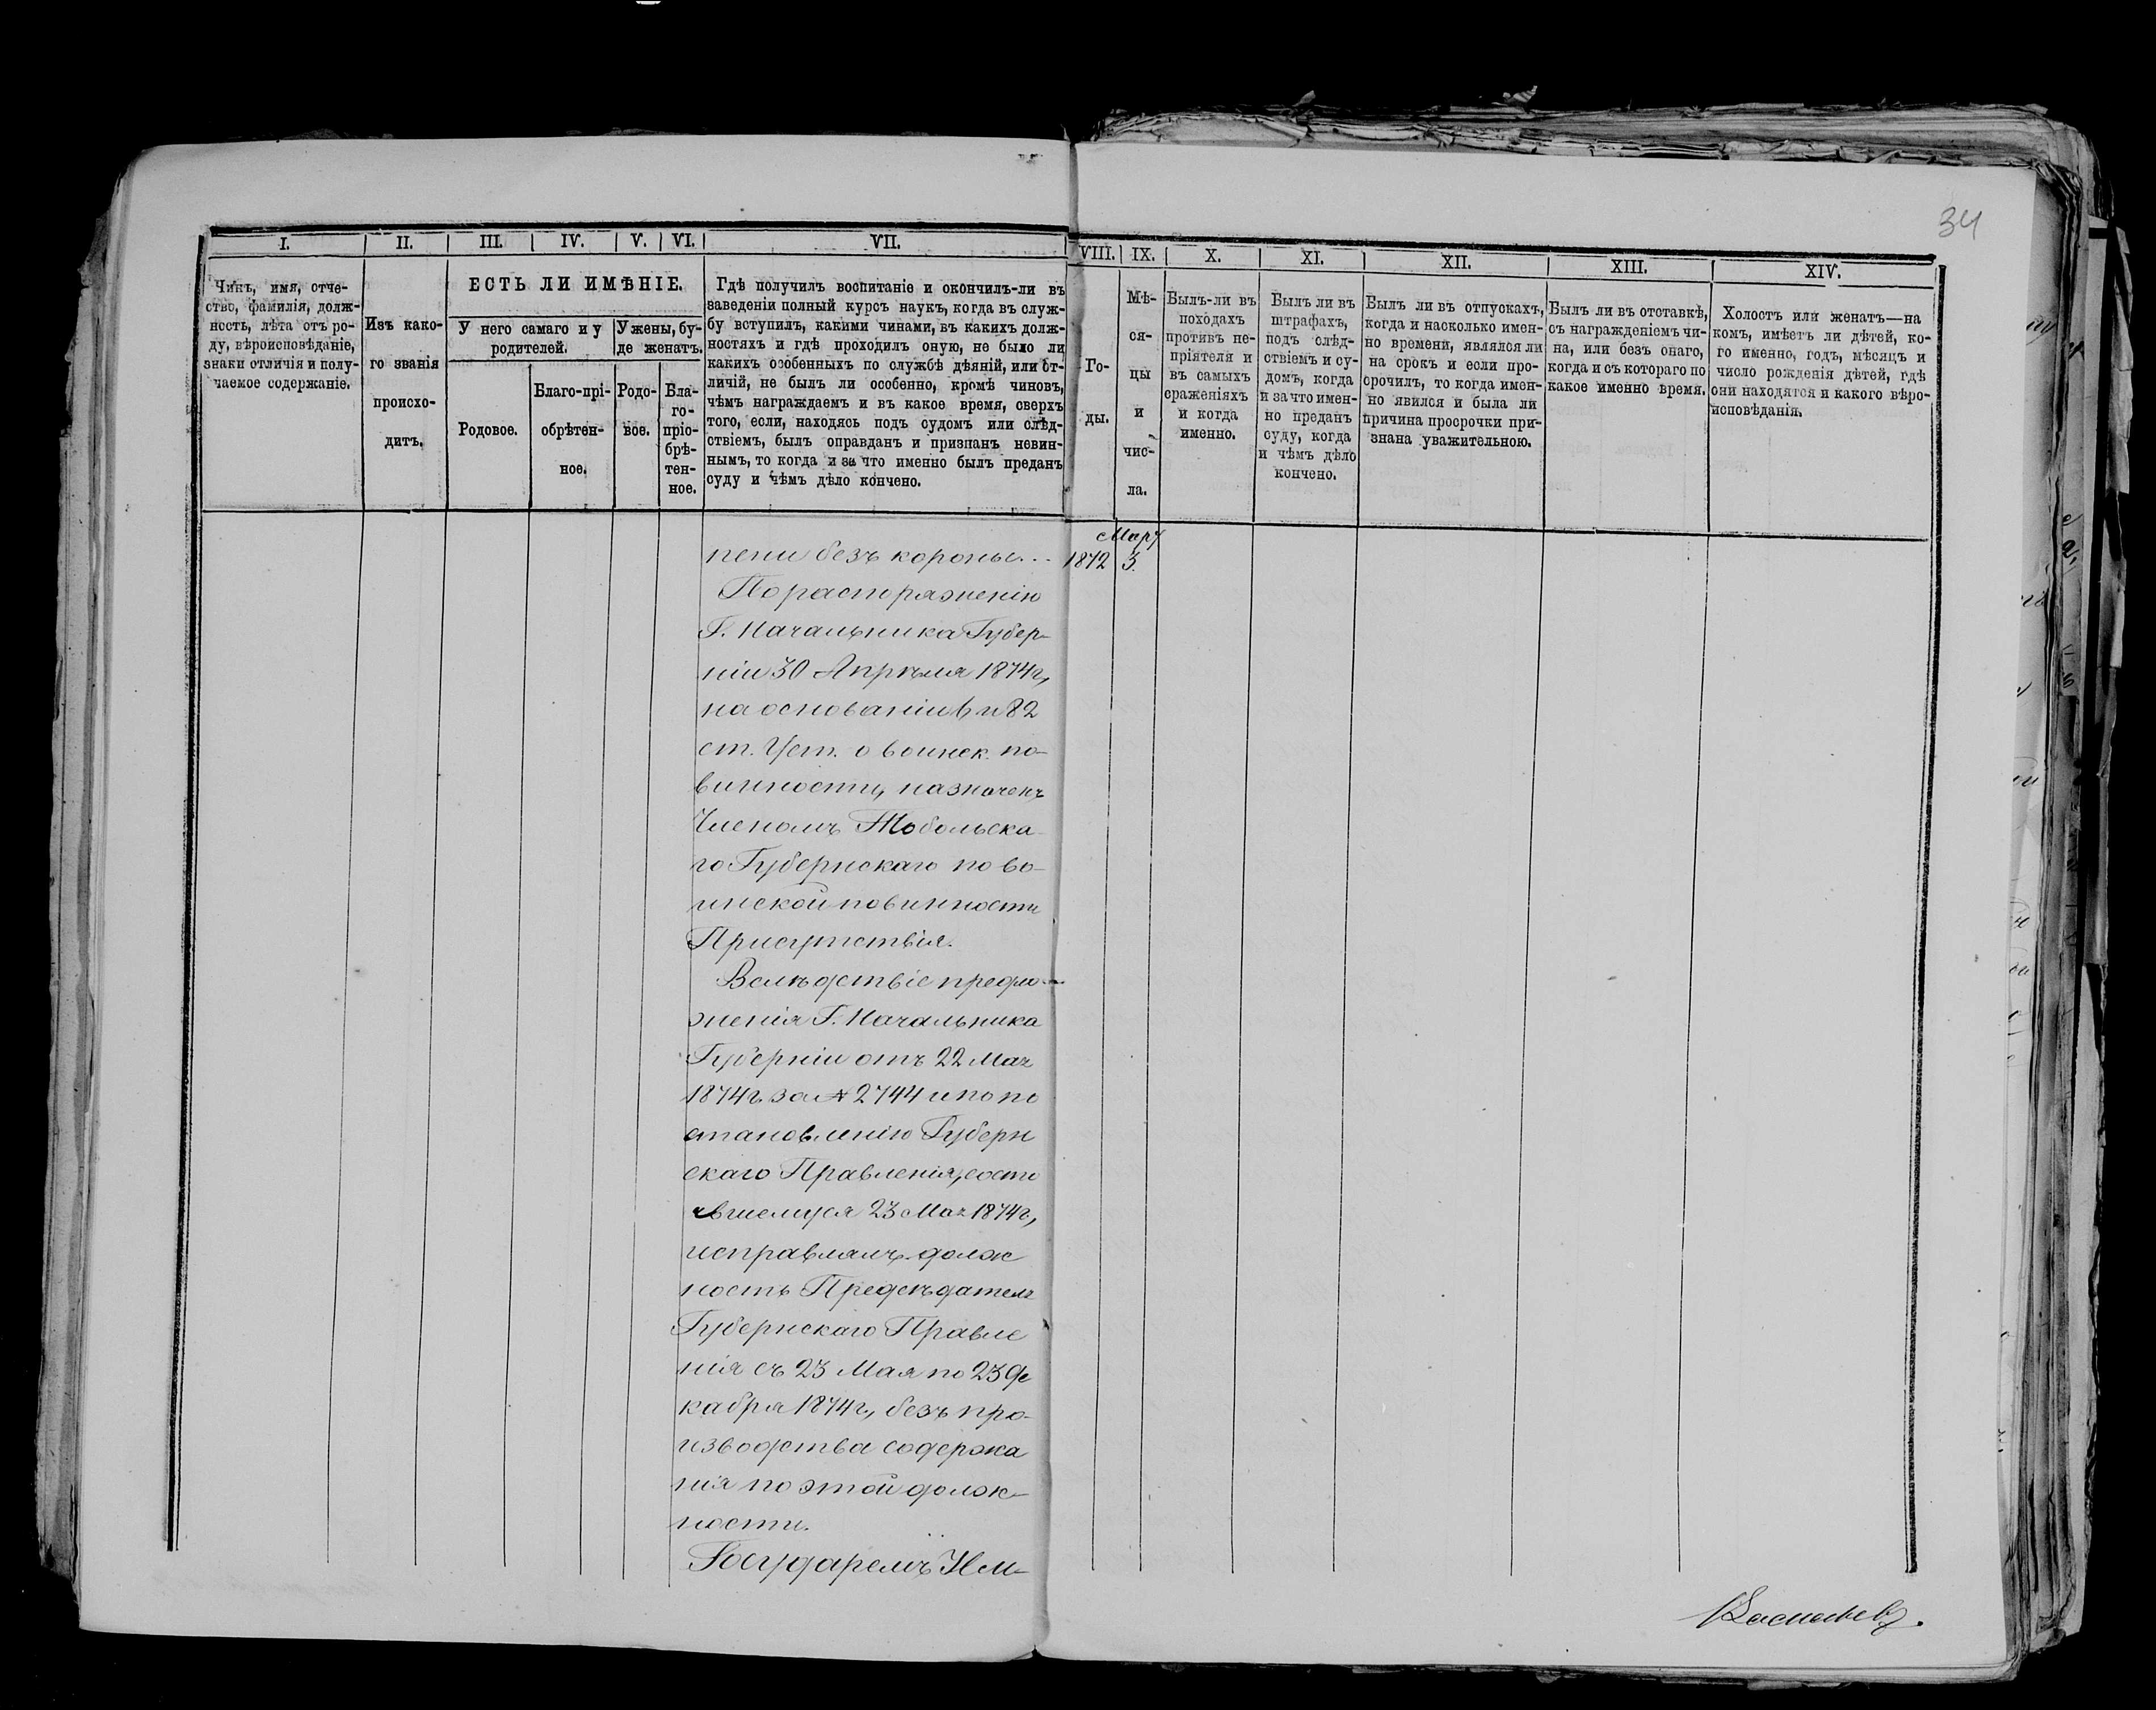 34
I. II. III. IV. V. VI. VII.
VIII. IX. X. XI. XII. XIII. XIV.
Чинъ, имя, отче-
ство, фамилія, долж-
ность, лѣта отъ ро-
ду, вѣроисповѣданіе,
знаки отличія и полу-
чаемое содержаніе.
Изъ како-
го званія
происхо-
дитъ.
ЕСТЬ ЛИ ИМѢНІЕ.
У него самаго и у
родителей.
У жены, бу-
де женатъ.
Родовое.
Благо-прі-
обрѣтен-
ное.
Родо-
вое.
Бла-
го-
пріо-
брѣ-
тен-
ное.
Гдѣ получилъ воспитаніе и окончилъ-ли въ
заведеніи полный курсъ наукъ, когда въ служ-
бу вступилъ, какими чинами, въ какихъ долж-
ностяхъ и гдѣ проходилъ оную, не было ли
какихъ особенныхъ по службѣ дѣяній, или от-
личій, не былъ ли особенно, кромѣ чиновъ,
чѣмъ награждаемъ и въ какое время, сверхъ
того, если, находясь подъ судомъ или слѣд-
ствіемъ, былъ оправданъ и признанъ невин-
нымъ, то когда и за что именно былъ преданъ
суду и чѣмъ дѣло кончено.
Го-
ды.
Мѣ-
ся-
цы
и
чис-
ла.
Былъ-ли въ
походахъ
противъ не-
пріятеля и
въ самыхъ
сраженіяхъ
и когда
именно.
Былъ ли въ
штрафахъ,
подъ слѣд-
ствіемъ и су-
домъ, когда
и за что имен-
но преданъ
суду, когда
и чѣмъ дѣло
кончено.
Былъ ли въ отпускахъ,
когда и насколько имен-
но времени, являлся ли
на срокъ и если про-
срочилъ, то когда имен-
но явился и была ли
причина просрочки при-
знана уважительною.
Былъ ли въ отставкѣ,
съ награжденіемъ чи-
на, или безъ онаго,
когда и съ котораго по
какое именно время.
Холостъ или женатъ—на
комъ, имѣетъ ли дѣтей, ко-
го именно, годъ, мѣсяцъ и
число рожденія дѣтей, гдѣ
они находятся и какого вѣро-
исповѣданія.
пени безъ короны... 1872 Мар. 3.
По распоряженію
Г. Начальника Губер-
ніи 30 Апрѣля 1874г,
на основаніи 6 и 82
ст. Уст. о воинск. по-
винности, назначенъ
Членомъ Тобольска-
го Губернскаго по во-
инской повинности
Присутствія.
Вслѣдствіе предло-
женія Г. Начальника
Губерніи отъ 22 Мая
1874г за № 2744 и по по
становленію Губерн
скаго Правленія, состо
явшемуся 23 Мая 1874г,
исправлялъ долж
ность Предсѣдателя
Губернскаго Правле
нія съ 23 Мая по 23 Де
кабря 1874г, безъ про-
изводства содержа
нія по этой долж-
ности.
Государемъ Им-